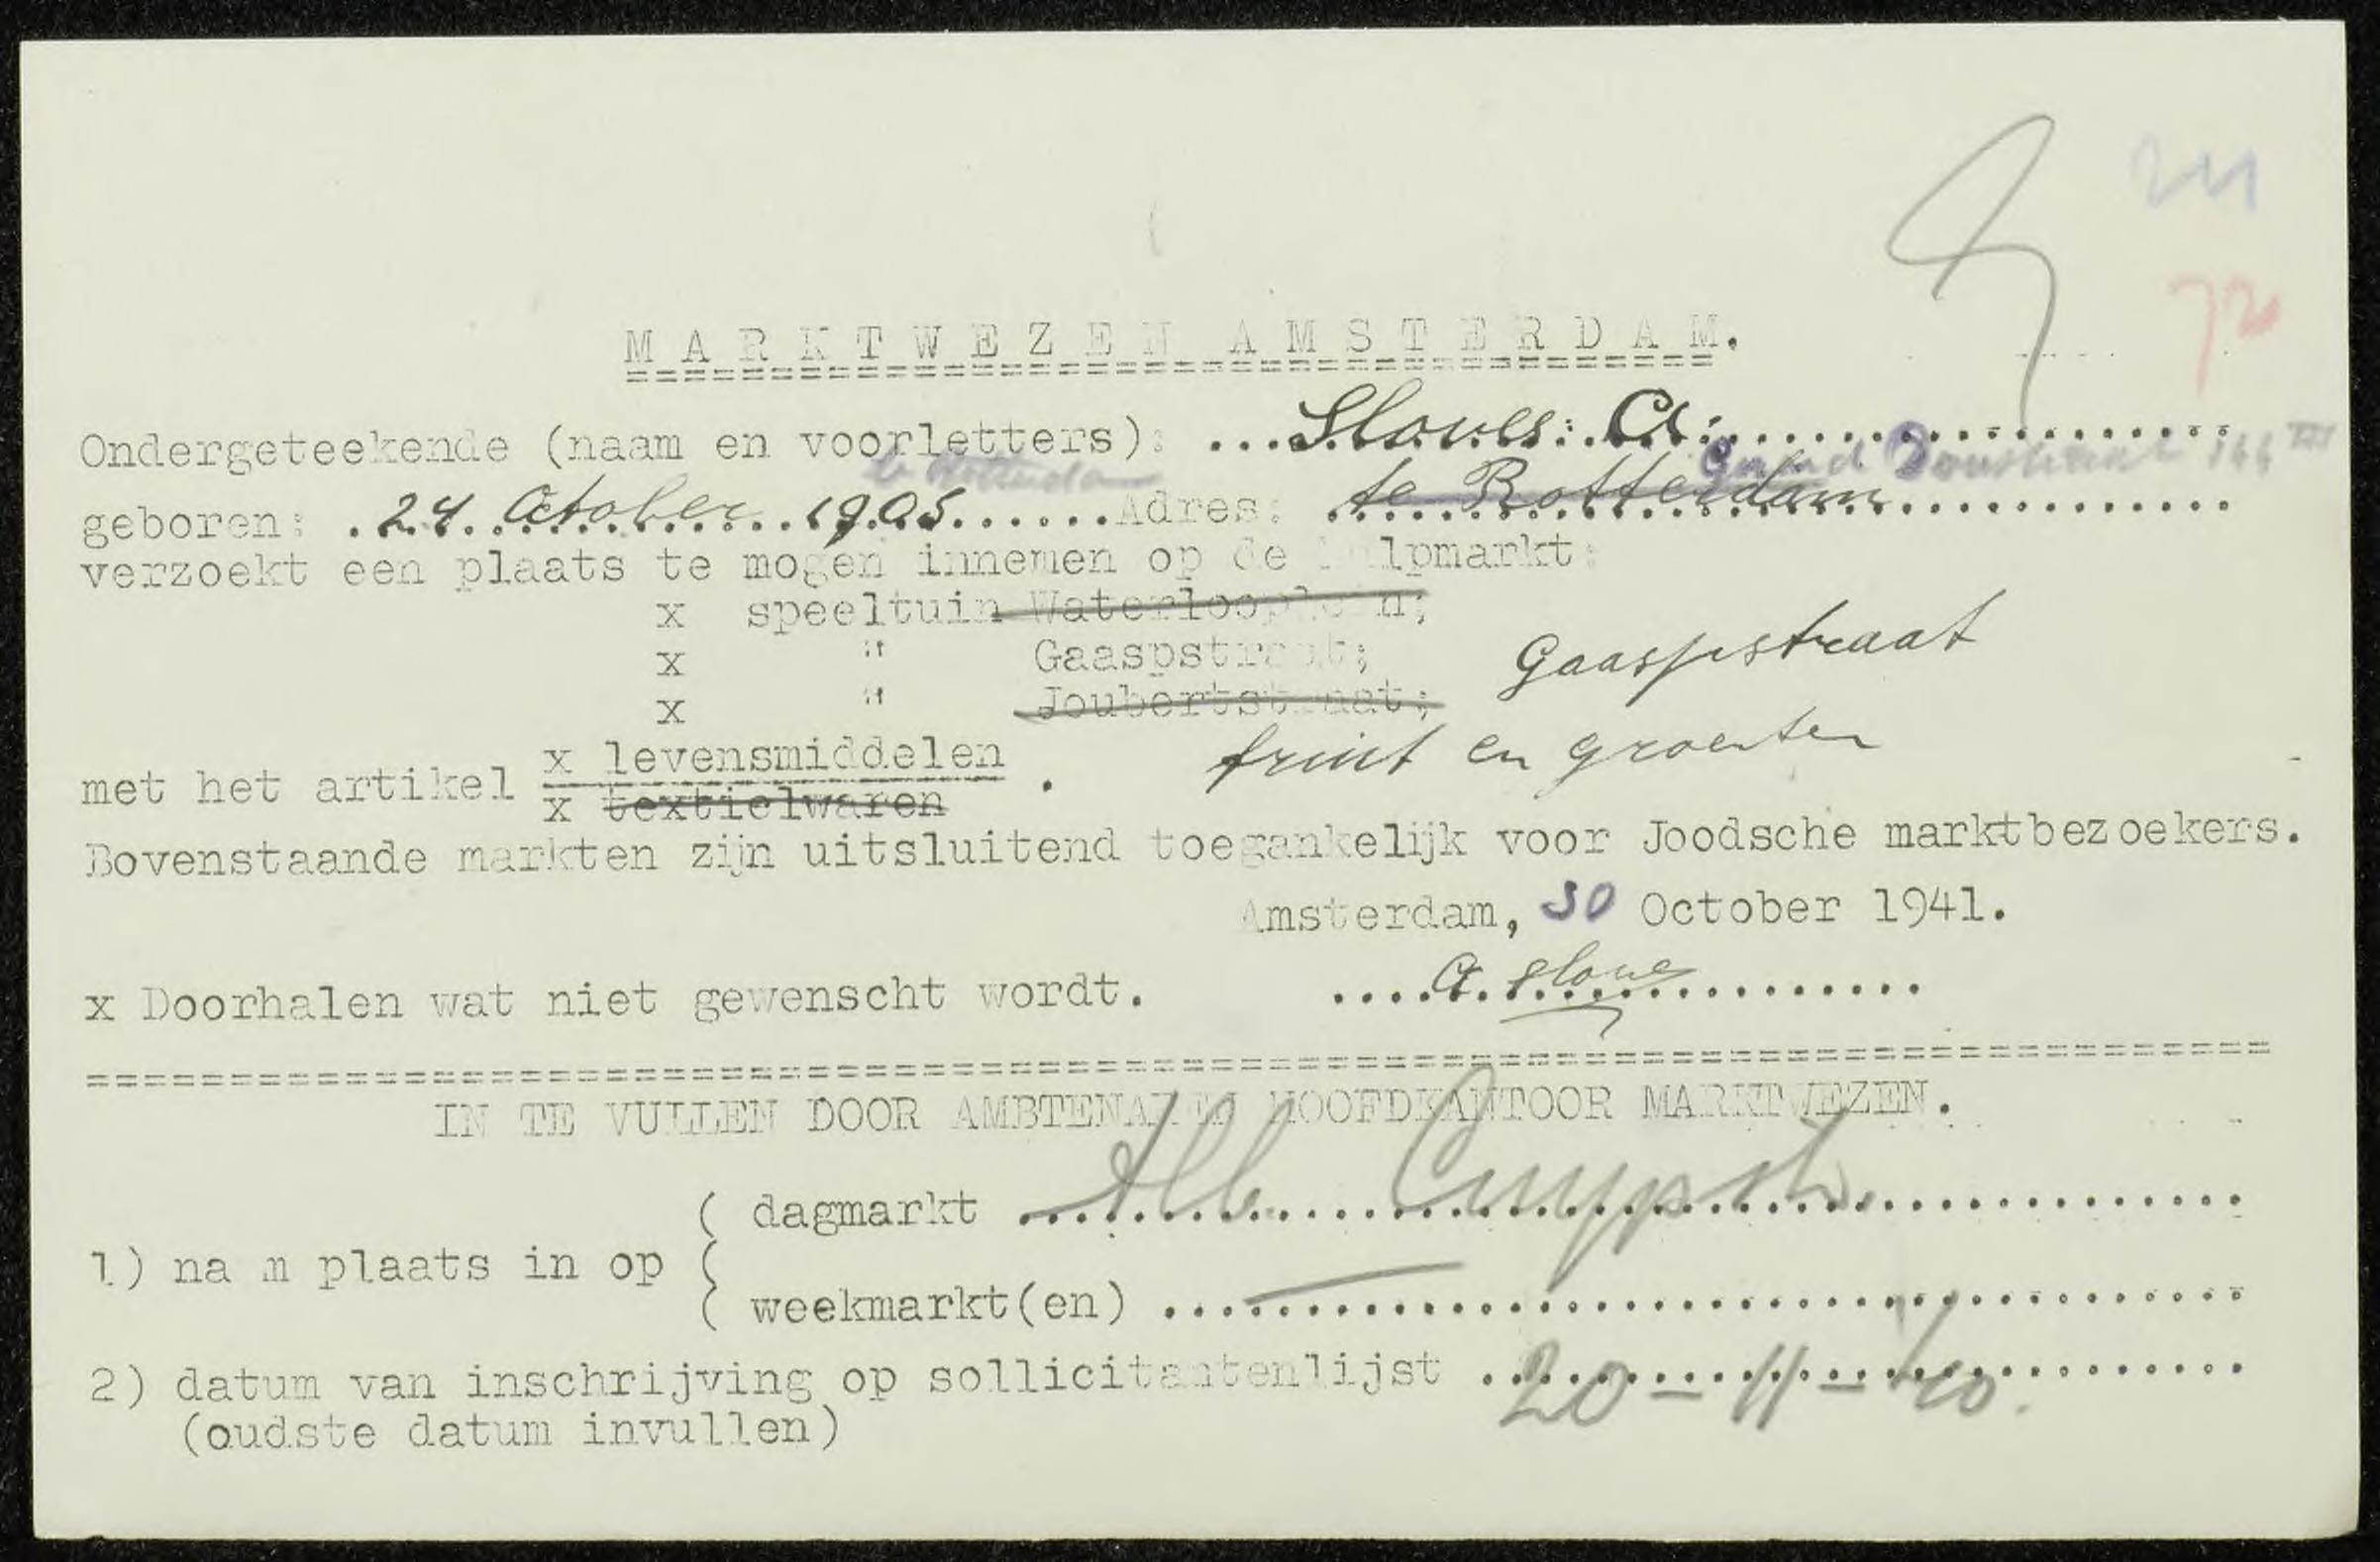 M A R K T W E Z E N  A M S T E R D A M.
Ondergeteekende (naam en voorletters): ...Sloves: A:
te Rotterdam 166 III
geboren: .24 October 1905......Adres: te Rotterdam
verzoekt een plaats te mogen innemen op de hulpmarkt:
x speeltuin Waterlooplein;
x " Gaaspstraat; Gaaspstraat
x " Joubertstraat;
x levensmiddelen fruit en groenten
met het artikel .
x textielwaren
Bovenstaande markten zijn uitsluitend toegankelijk voor Joodsche marktbezoekers.
Amsterdam, 30 October 1941.
x Doorhalen wat niet gewenscht wordt. ....A. Slowe
IN TE VULLEN DOOR AMBTENAREN HOOFDKANTOOR MARKTWEZEN.
( dagmarkt Alb. Cuypstr.
1) nam plaats in op (
( weekmarkt(en) —
2) datum van inschrijving op sollicitantenlijst 20-11-40.
(oudste datum invullen)